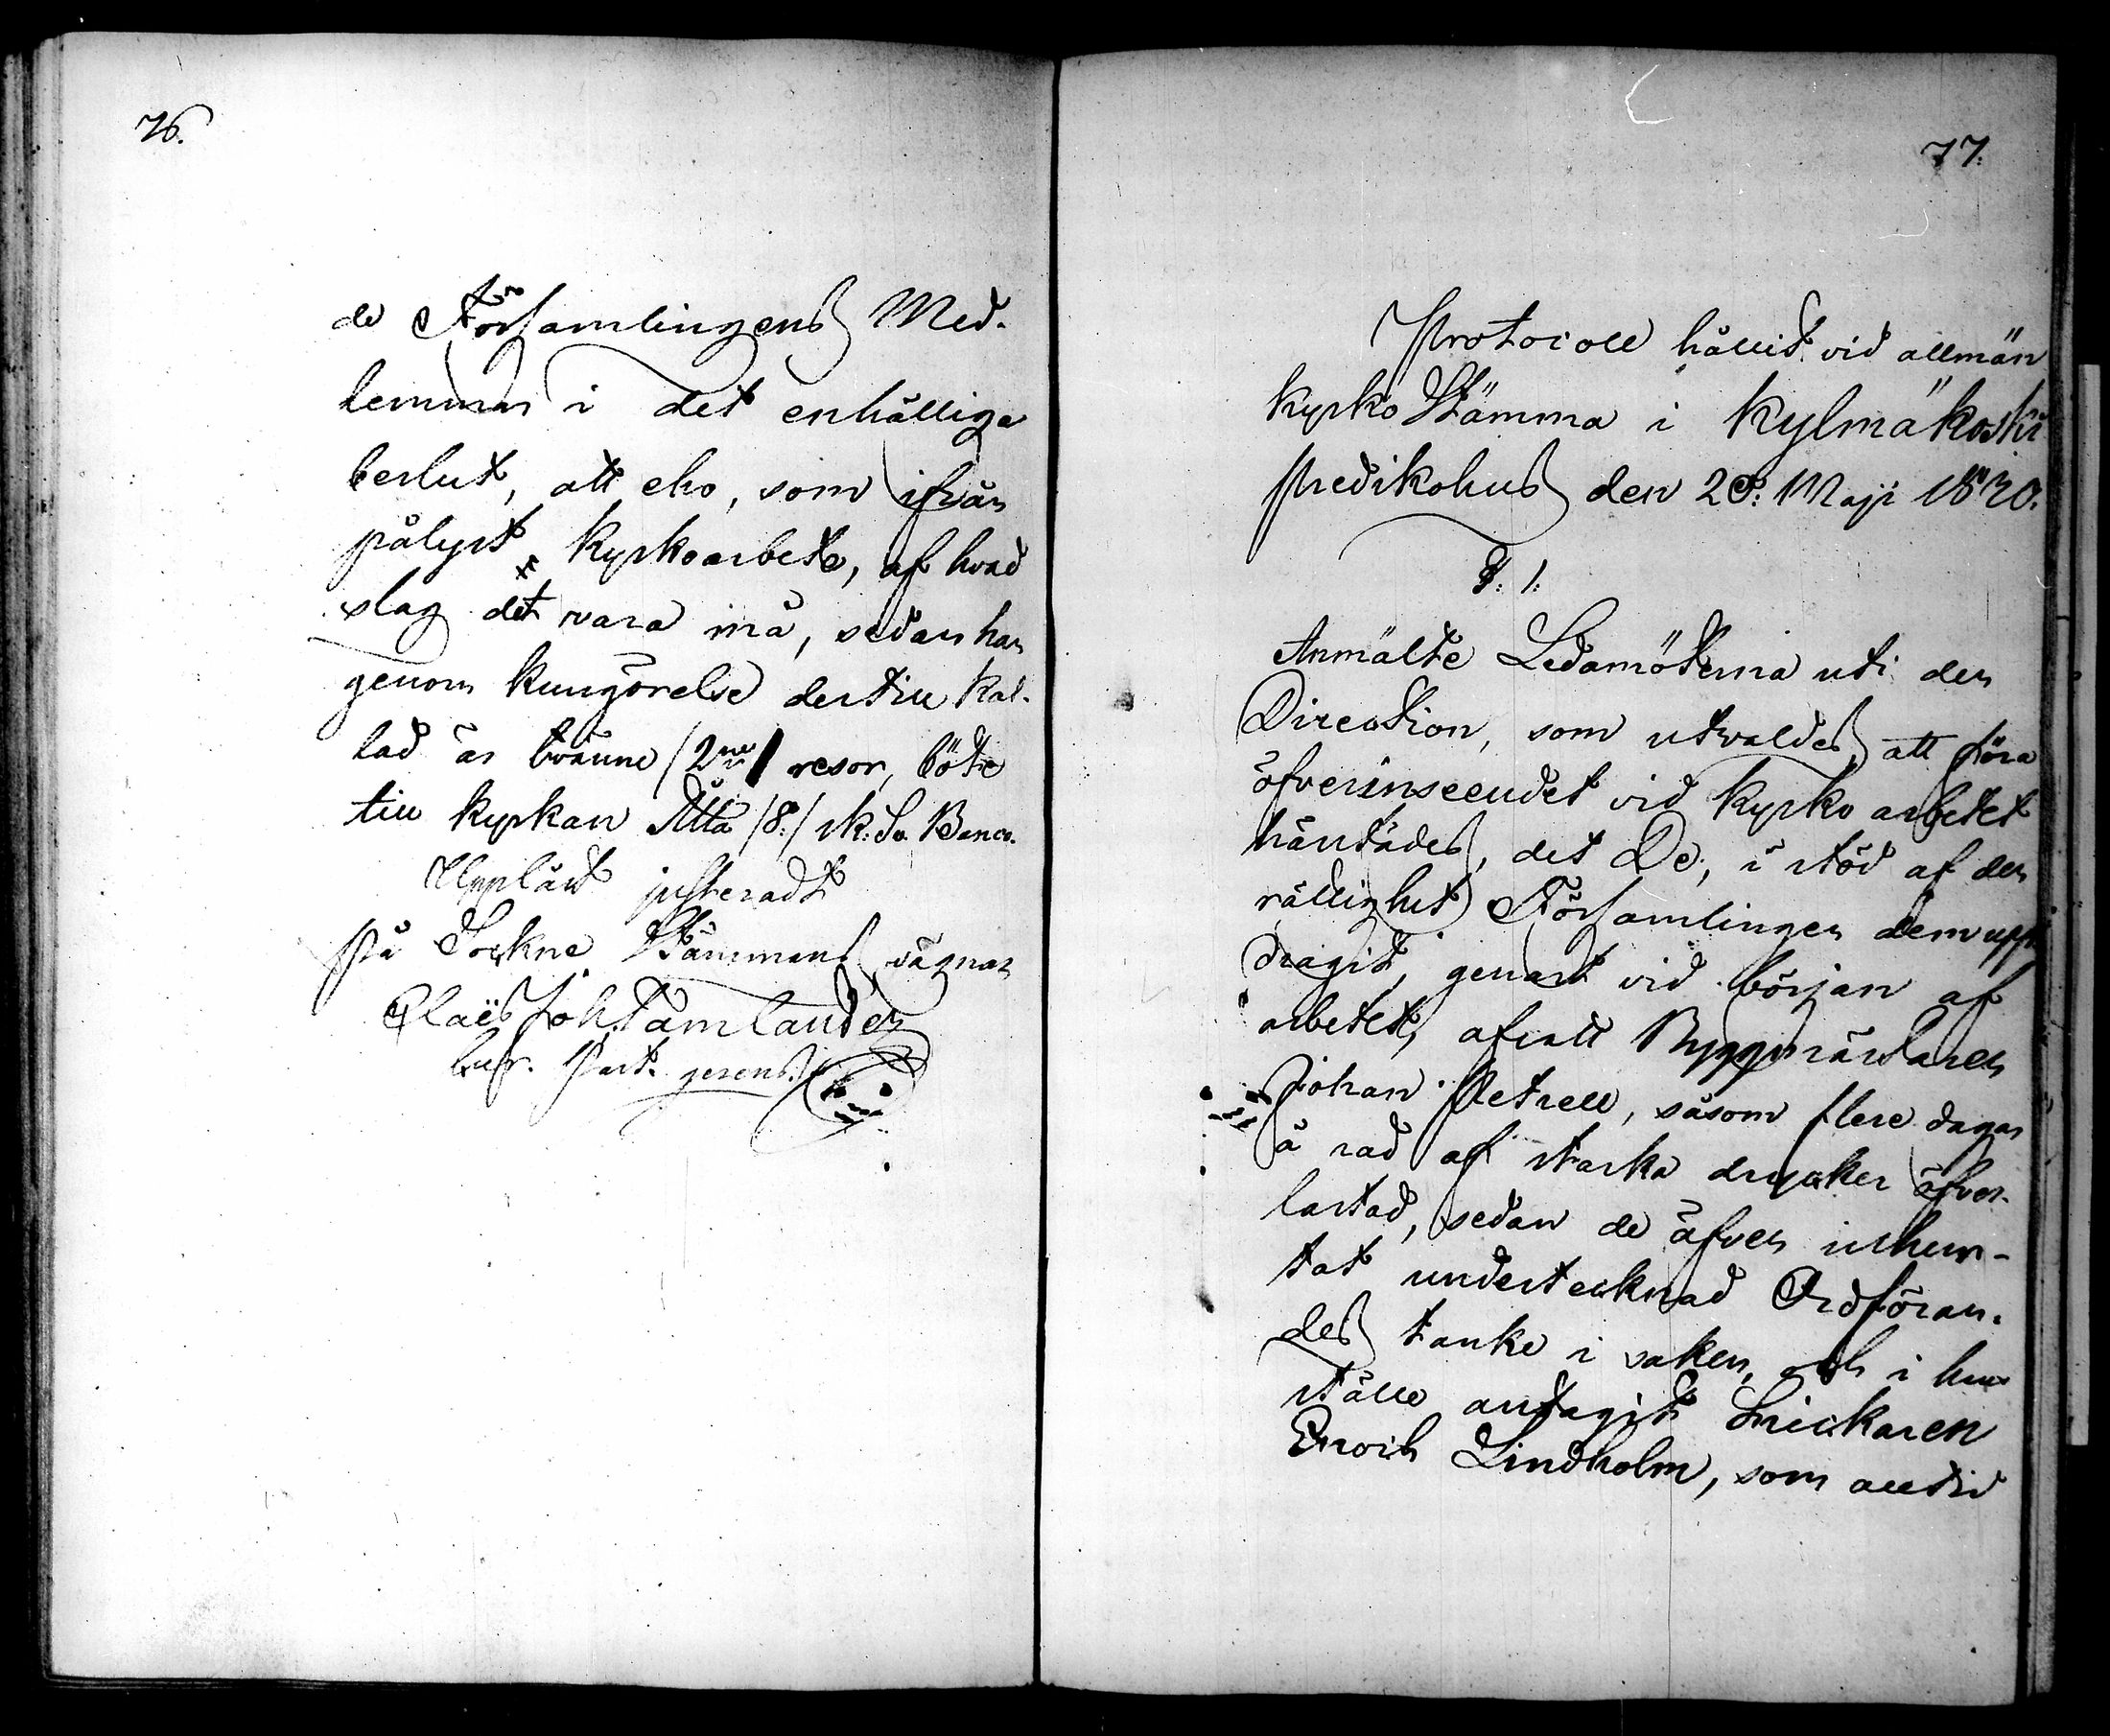 76.
de Församlingens Med-
lemmar i det enhälliga
beslut, att eho, som ifrån
pålyst kyrkoarbete, af hvad
slag det vara må, sedan han
genom kungörelse dertill kal-
lad är tvänne /2ne/ resor, böte
till kyrkan Åtta /8:/ sk: S. Banco.
Uppläst justeradt
På Sockne Stämmans vägnar
Claës Joh. Tamlander
77.
Protocoll hållit vid allmän
kyrko Stämma i Kylmäkoski
Predikohus den 20: Maji 1830.
§: 1:
Anmälte Ledamöterna uti den
Direction, som utvaldes att föra
öfverinseendet vid kyrko arbetet
härstädes, det De, i stöd af den
rättighet Församlingen dem upp
dragit, genast vid början af
arbetet, afsatt Byggmästaren
Johan Petrell, såsom flere dagar
å rad af starka drycker öfver-
lastad, sedan de äfven inhem-
tat undertecknad Ordföran-
des tanke i saken, och i hans
ställe antagit Snickaren
Enoch Lindholm, som alltid